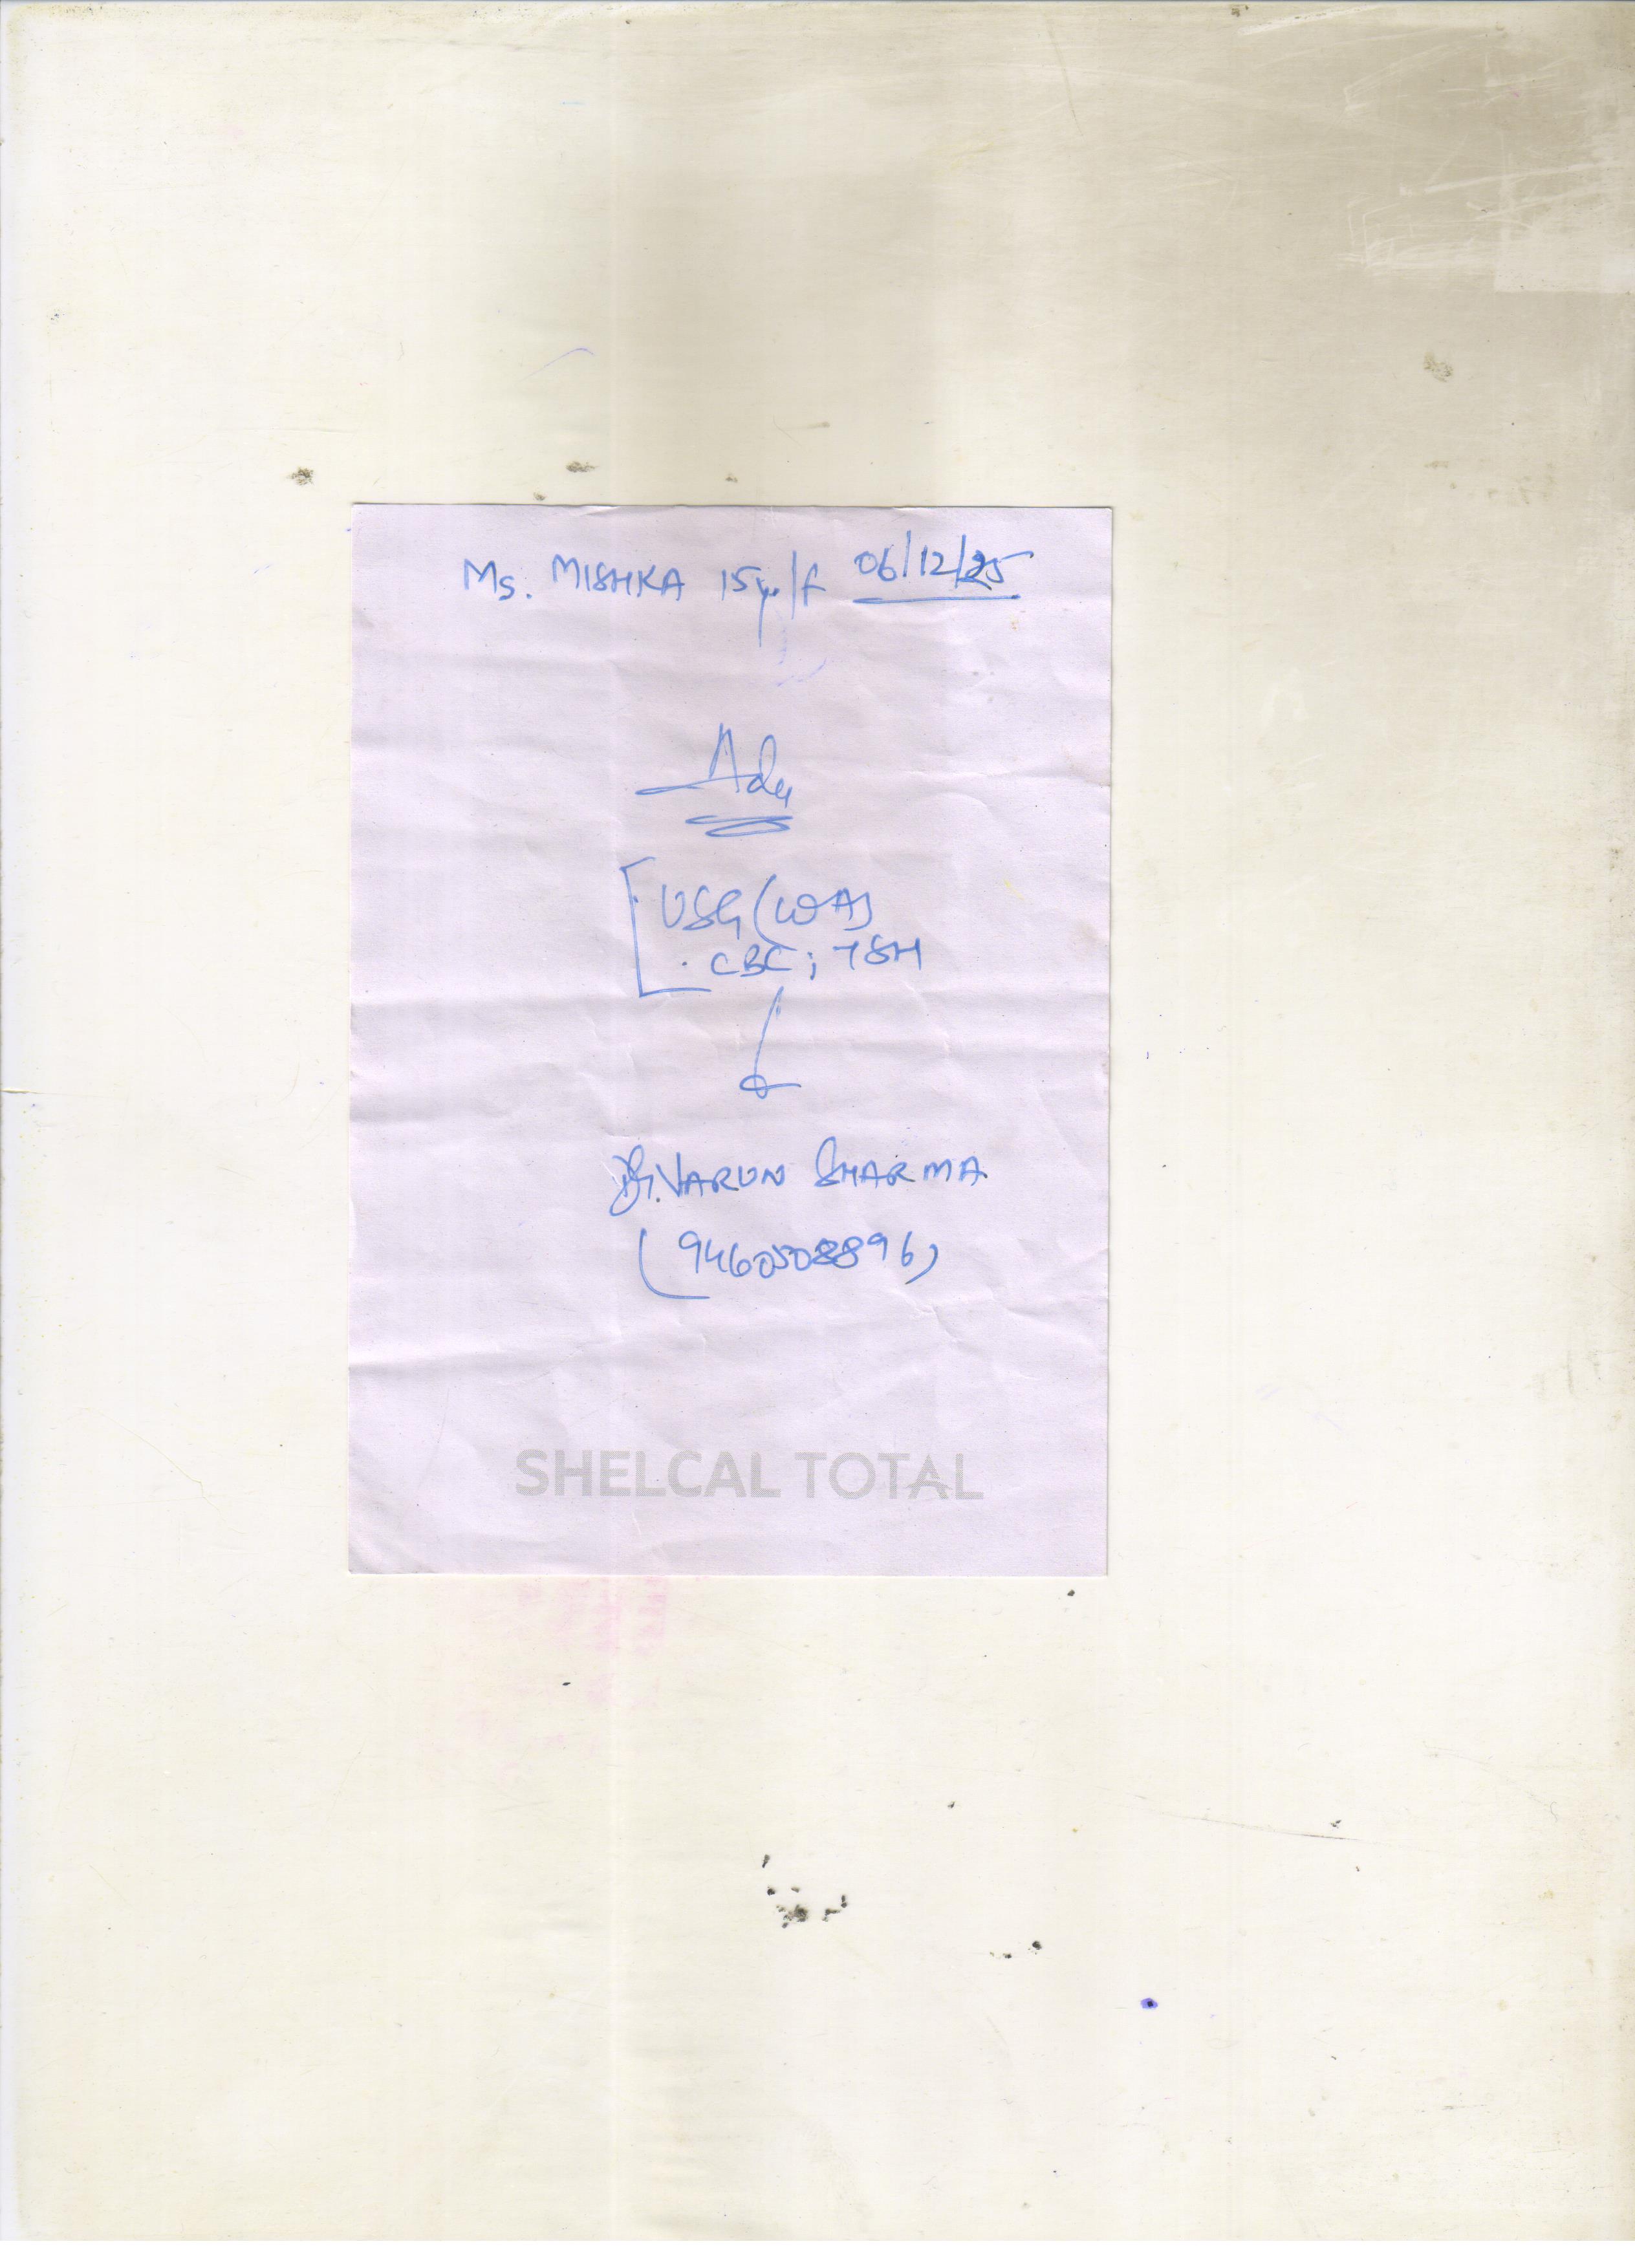 Ms. MISHKA 15yr/f 06/12/25
Adv
USG (WA)
CBC; TSH
Dr. VARUN SHARMA
(9460508896)
SHELCAL TOTAL